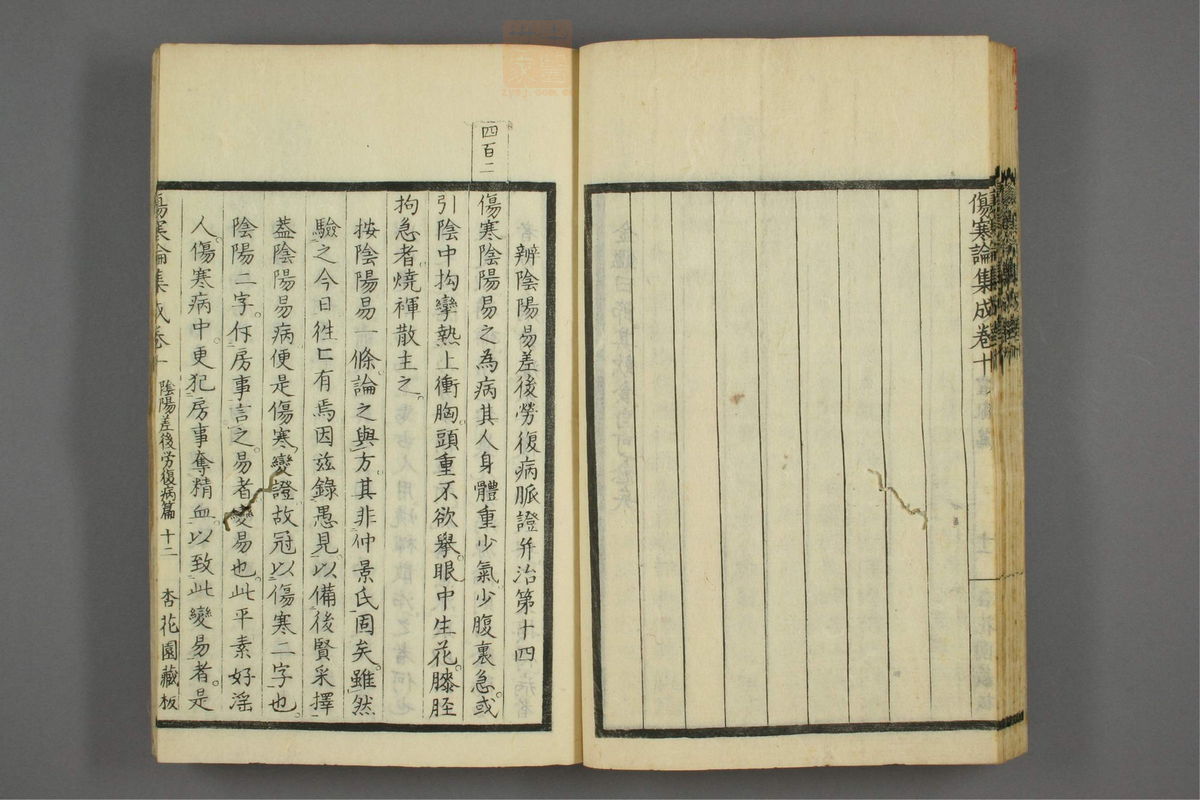 傷寒論集成卷十
四百二
辨陰陽易差後勞復病脈證并治第十四
傷寒陰陽易之為病其人身體重少氣少腹裏急或
引陰中拘攣熱上衝胸頭重不欲舉眼中生花膝脛
拘急者燒褌散主之
按陰陽易一條論之與方其非仲景氏固矣雖然
驗之今日徃々有焉因茲錄愚見以備後賢采擇
蓋陰陽易病便是傷寒變證故冠以傷寒二字也
陰陽二字斥房事言之易者變易也此平素好淫
人傷寒病中更犯房事奪精血以致此變易者是
傷寒論集成卷十 陰陽差後労復病篇 十二 杏花園藏板